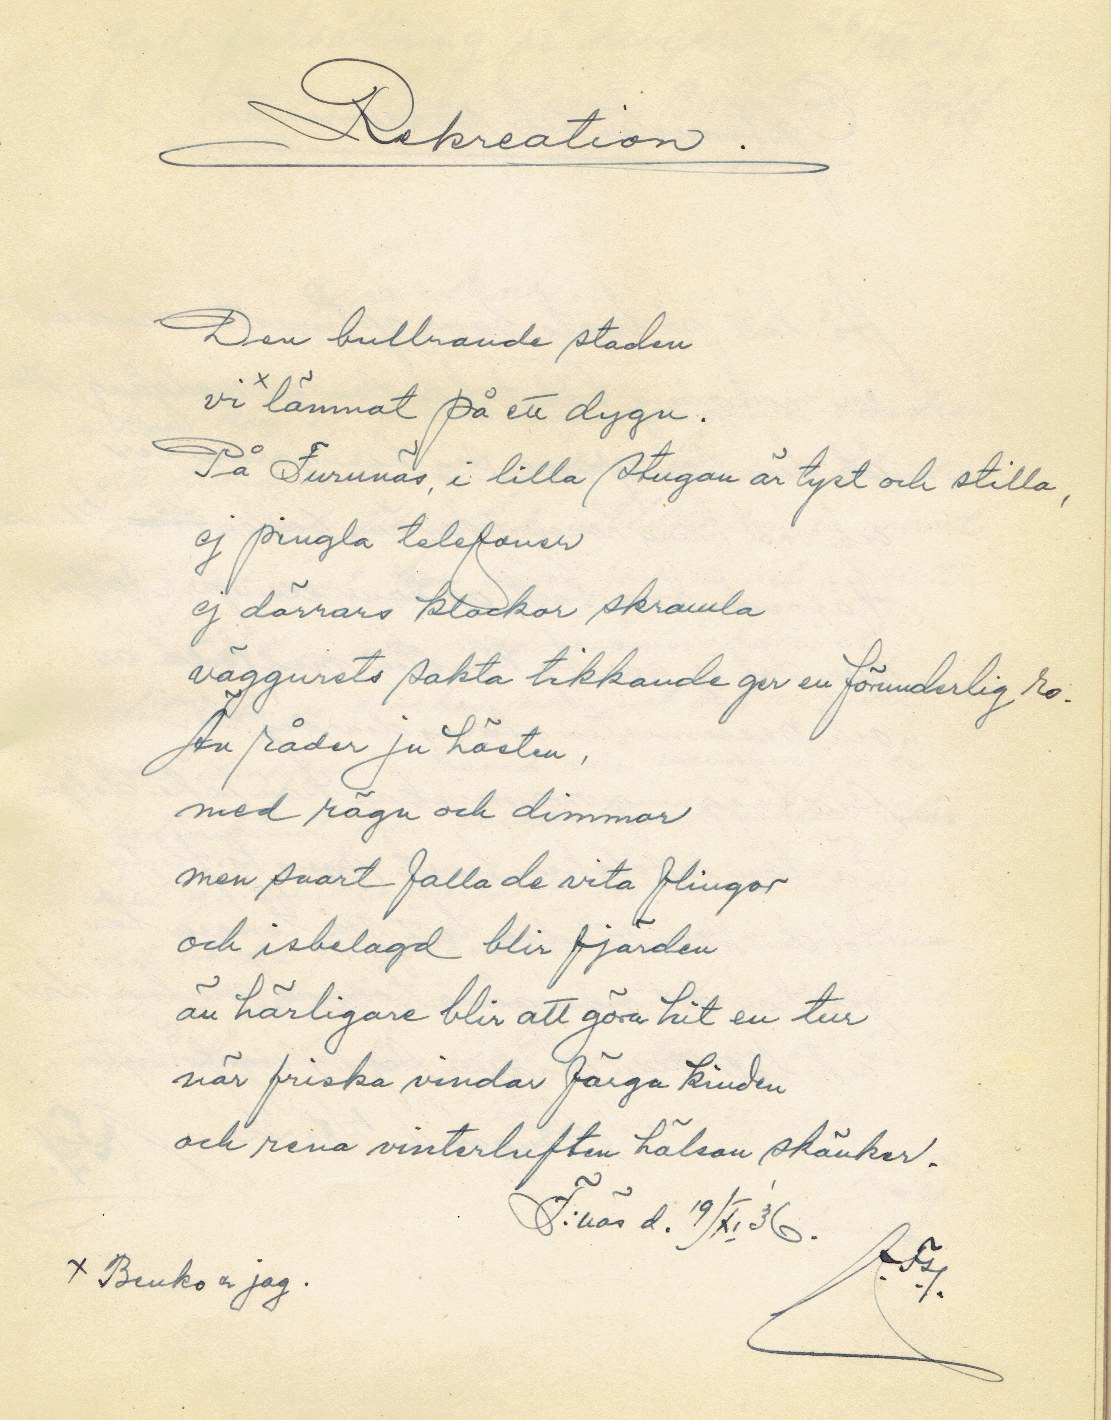 Rekreation.
Den bullrande staden
vi x lämnat på ett dygn.
På Furunäs, i lilla stugan är tyst och stilla,
ej pingla telefoner
ej dörrars klockor skramla
väggurets sakta tikkande ger en förunderlig ro.
Än råder ju hösten,
med rägn och dimmor
men snart falla de vita flingor
och isbelagd blir fjärden
än härligare blir att göra hit en tur
när friska vindar färga kinden
och rena vinterluften hälsan skänker.
F:näs d. 19/XI '36.
x Benko o jag.